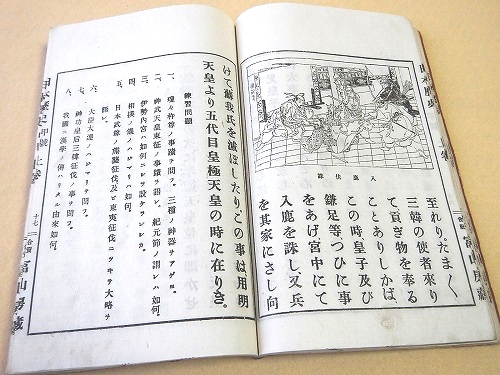 入鹿伏誅
至れり。たま〱
三韓の使者來り
て貢ぎ物を奉る
ことありしかば、
この時皇子及び
鎌足等つひに事
をあげ宮中にて
入鹿を誅し、又兵
を其家にさし向
けて蘇我氏を滅ぼしたり。この事は用明
天皇より五代目皇極天皇の時に在りき。
練習問題
一、瓊々杵尊ノ事蹟ヲ問フ。三種ノ神器ヲアゲヨ。
二、神武天皇東征ノ事蹟ヲ語レ。紀元節ノ謂レハ如何。
三、伊勢内宮ハ如何ニシテ設ケラレシカ。
四、相撲ノ儀ノハジマリヲ問フ。
五、日本武尊ノ熊襲征伐及ビ東夷征伐ニツキテ大略ヲ
語レ。
六、大臣大連ノハジマリヲ問フ。
七、神功皇后三韓征伐ノ事ヲ問フ。
八、我國ニ漢學ノ傳ハリタル由來如何。
日本歴史 甲種 上巻 十七 冨山房蔵